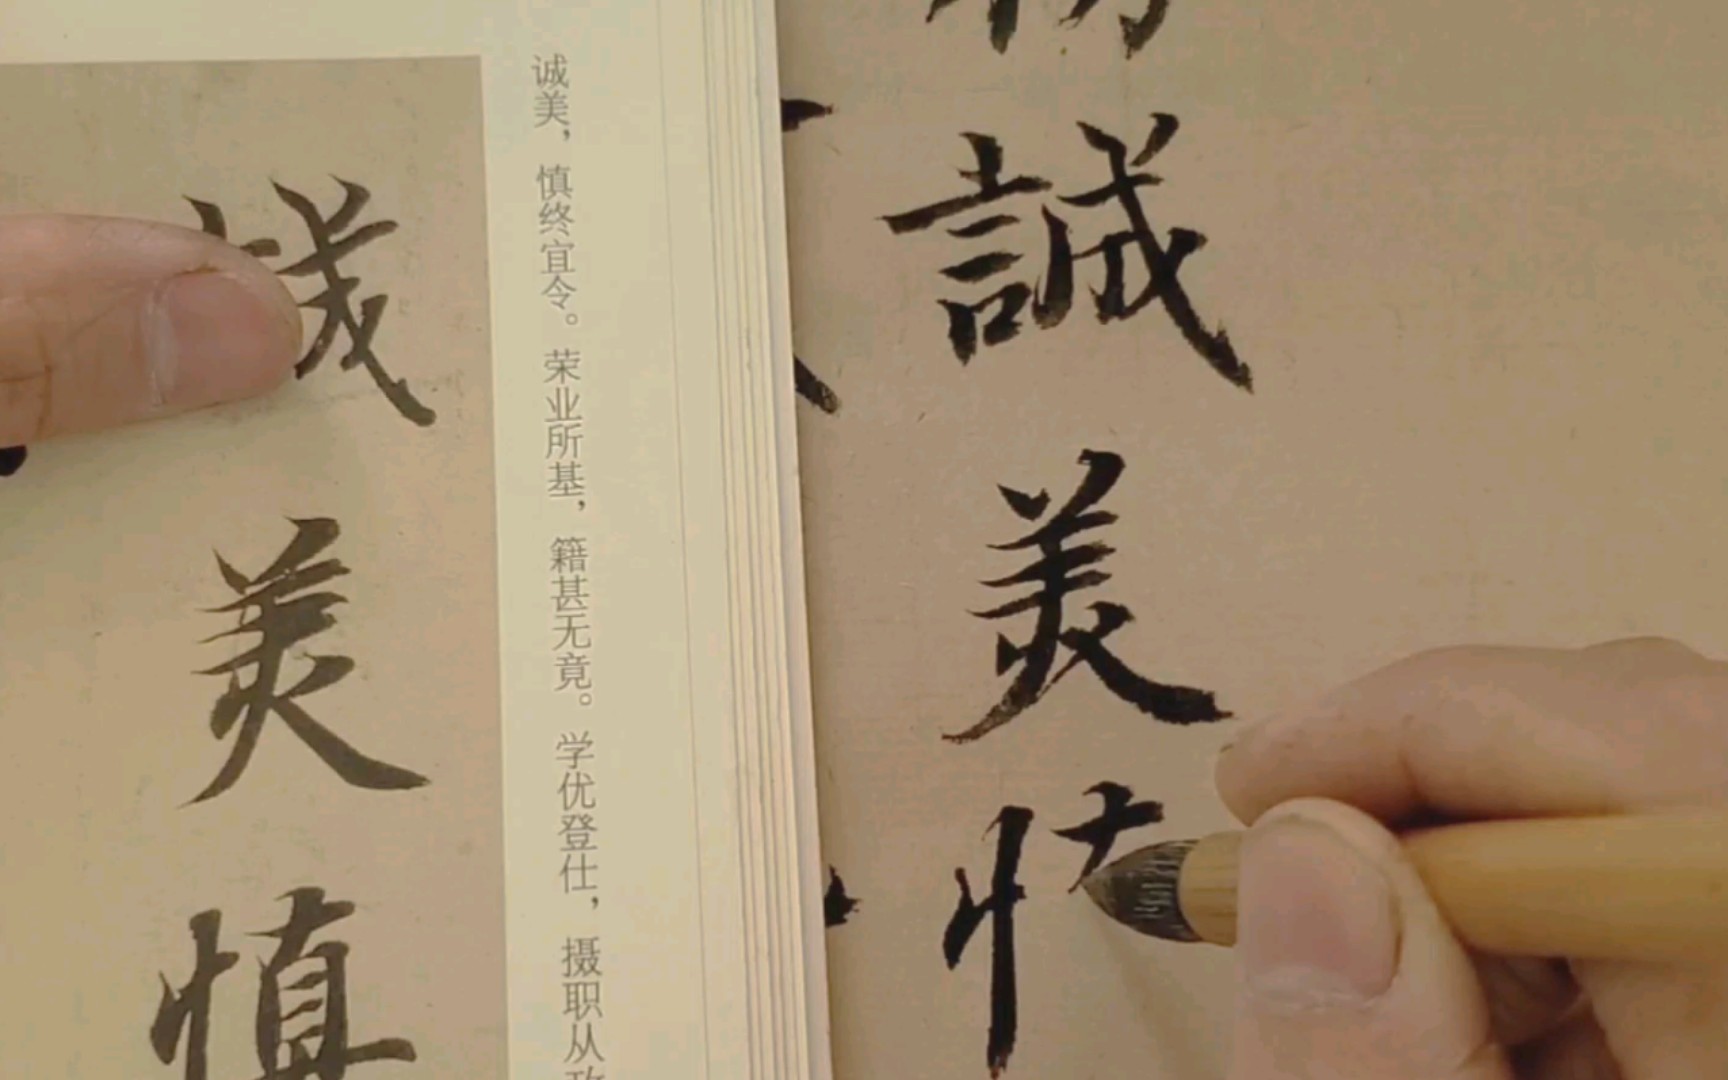 誠美
诚美，慎终宜令。荣业所基，籍甚无竟。学优登仕，摄职从
美慎